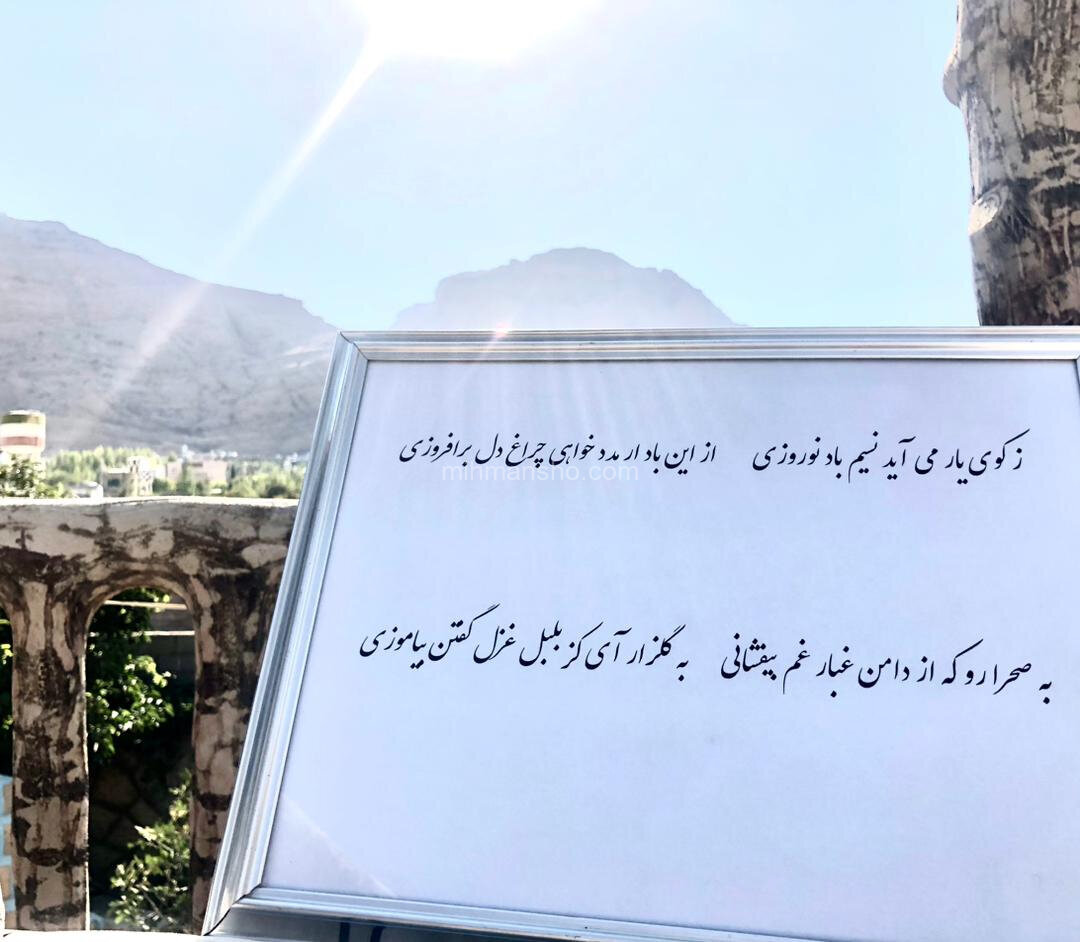 ز کوی یار می آید نسیم باد نوروزی از این باد ار مدد خواهی چراغ دل برافروزی
mihmansho.com
به صحرا رو که از دامن غبار غم بیفشانی به گلزار آی کز بلبل غزل گفتن بیاموزی